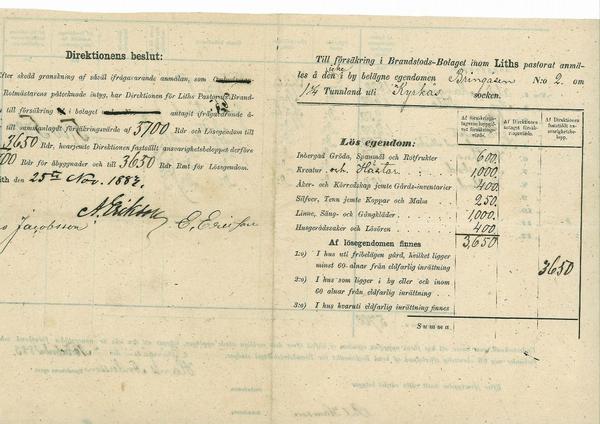 Direktionens beslut:
Efter skedd granskning af såväl ifrågavarande anmälan, som
Rotmästarens påtecknade intyg, har Direktionen för Liths Pastorats Brand-
till försäkring i bolaget antagit ifrågavarande å-
till sammanlagdt försäkringsvärde af 5700 Rdr och Lösegendom till
3650 Rdr, hvarjemte Direktionen fastställt ansvarighetsbeloppet derföre
00 Rdr för åbyggnader och till 3650 Rdr Rmt för Lösegendom.
ith den 25te Nov. 1887.
Jacobsson A. Erikson E. Ericson
Till försäkring i Brandstods-Bolaget inom Liths pastorat anmä-
les å den i by belägne egendomen Bringåsen N:o 2. om
1¾ Tunnland uti Kyrkås socken.
Af försäkrings-
tagaren uppgif-
vet försäkrings-
värde.
Af Direktionen
antaget försäk-
ringsvärde.
Af Direktionen
fastställt an-
svarighetsbe-
lopp.
Lös egendom:
Inbergad Gröda, Spanmål och Rotfrukter 600
Kreatur och Hästar 1,000
Åker- och Körredskap jemte Gårds-inventarier 400
Silfver, Tenn jemte Koppar och Malm 250
Linne, Säng- och Gångkläder 1,000
Husgerådssaker och Lösören 400
3,650
Af lösegendomen finnes
1:o) I hus uti fribelägen gård, hvilket ligger
minst 60 alnar från eldfarlig inrättning 3650
2:o) I hus som ligger i by eller och inom
60 alnar från eldfarlig inrättning
3:o) I hus hvaruti eldfarlig inrättning finnes
Summa